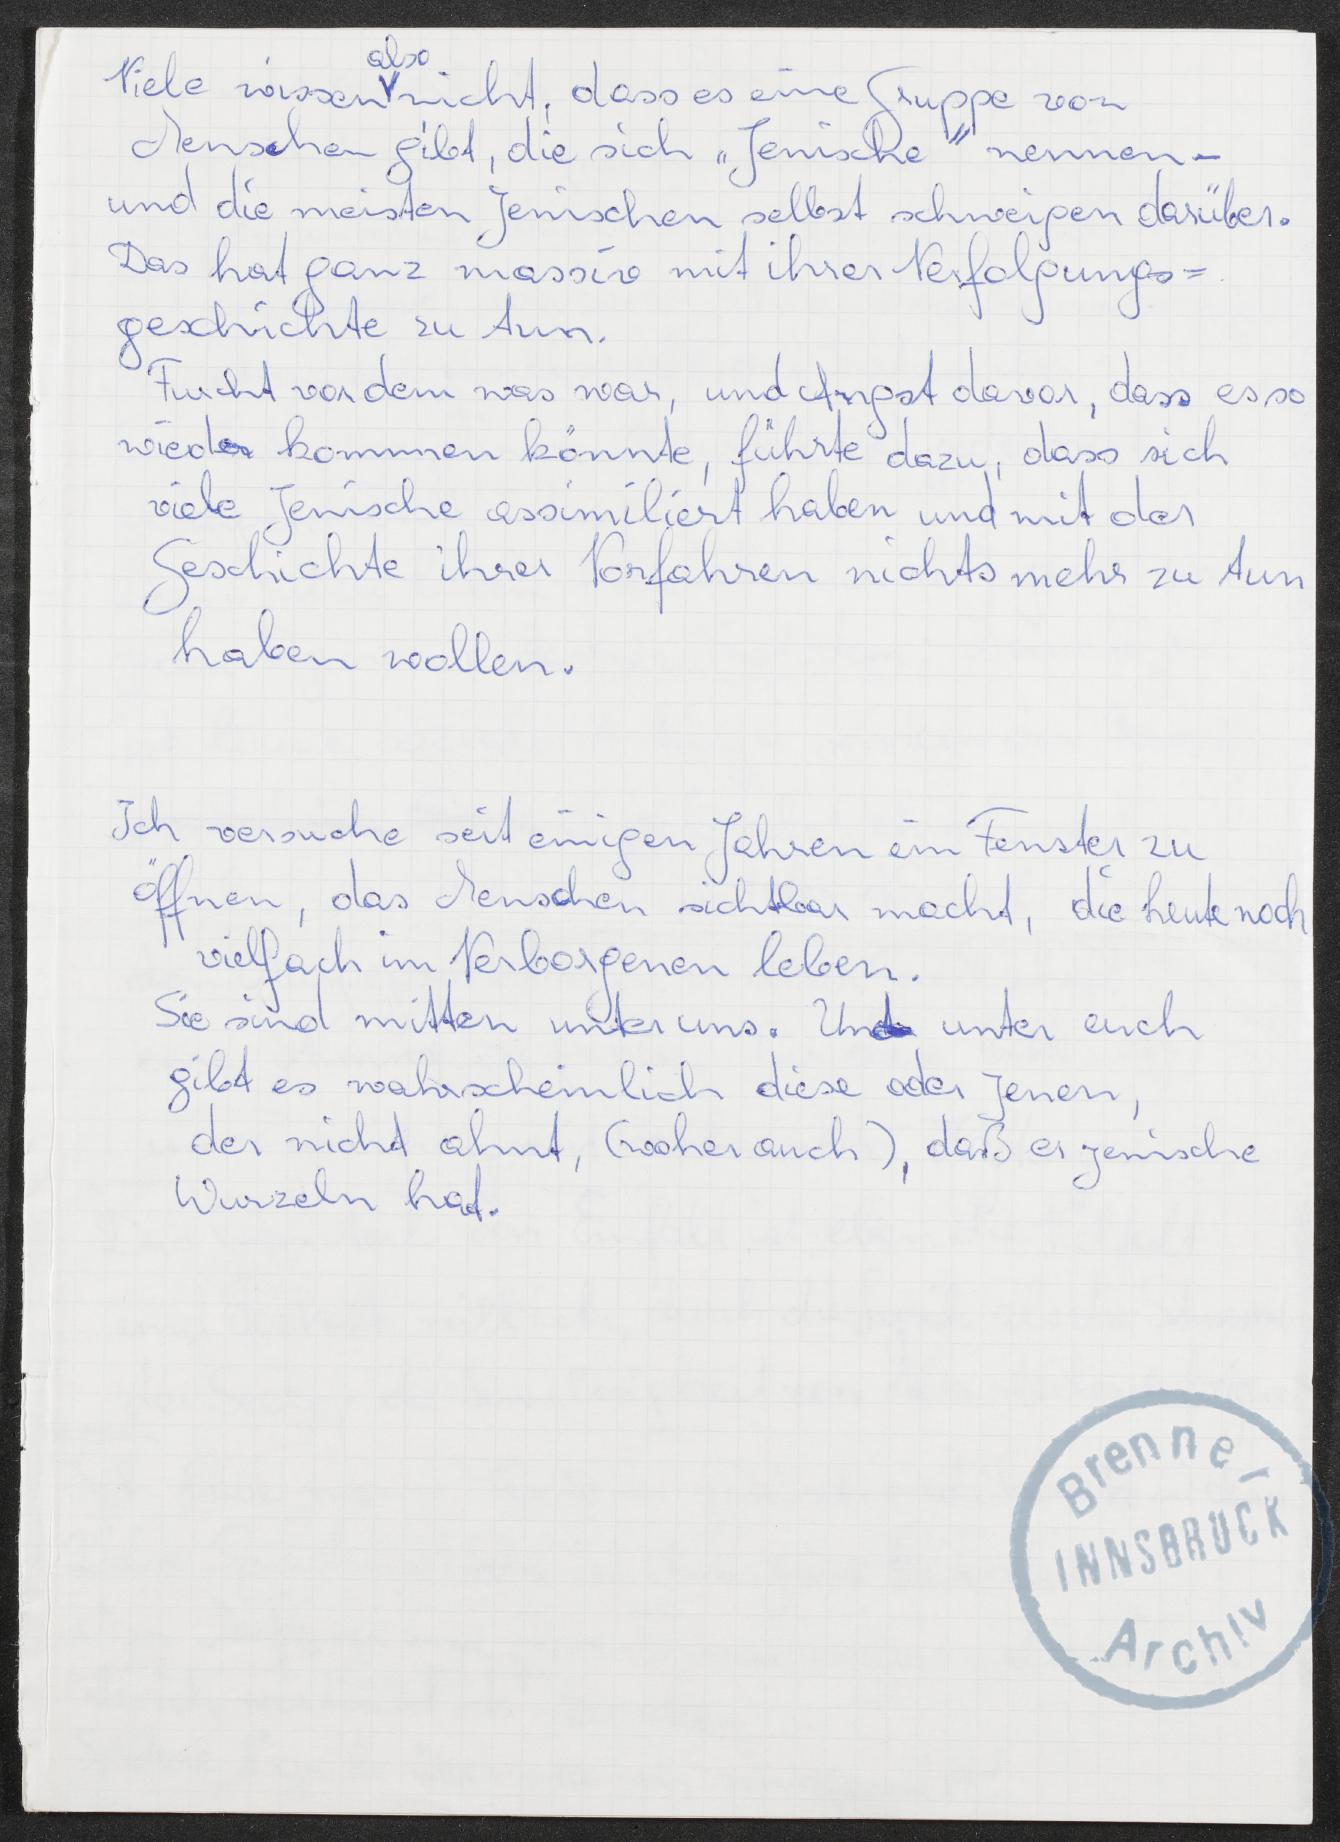 also
Viele wissen nicht, dass es eine Gruppe von
Menschen gibt, die sich „Jenische" nennen –
und die meisten Jenischen selbst schweigen darüber.
Das hat ganz massiv mit ihrer Verfolgungs=
geschichte zu tun.
Furcht vor dem was war, und Angst davor, dass es so
wieder kommen könnte, führte dazu, dass sich
viele Jenische assimiliert haben und mit der
Geschichte ihrer Vorfahren nichts mehr zu tun
haben wollen.
Ich versuche seit einigen Jahren ein Fenster zu
öffnen, das Menschen sichtbar macht, die heute noch
vielfach im Verborgenen leben.
Sie sind mitten unter uns. Und unter euch
gibt es wahrscheinlich diese oder jenen,
der nicht ahnt, (woher auch), daß er jenische
Wurzeln hat.
Brenner-
INNSBRUCK
Archiv